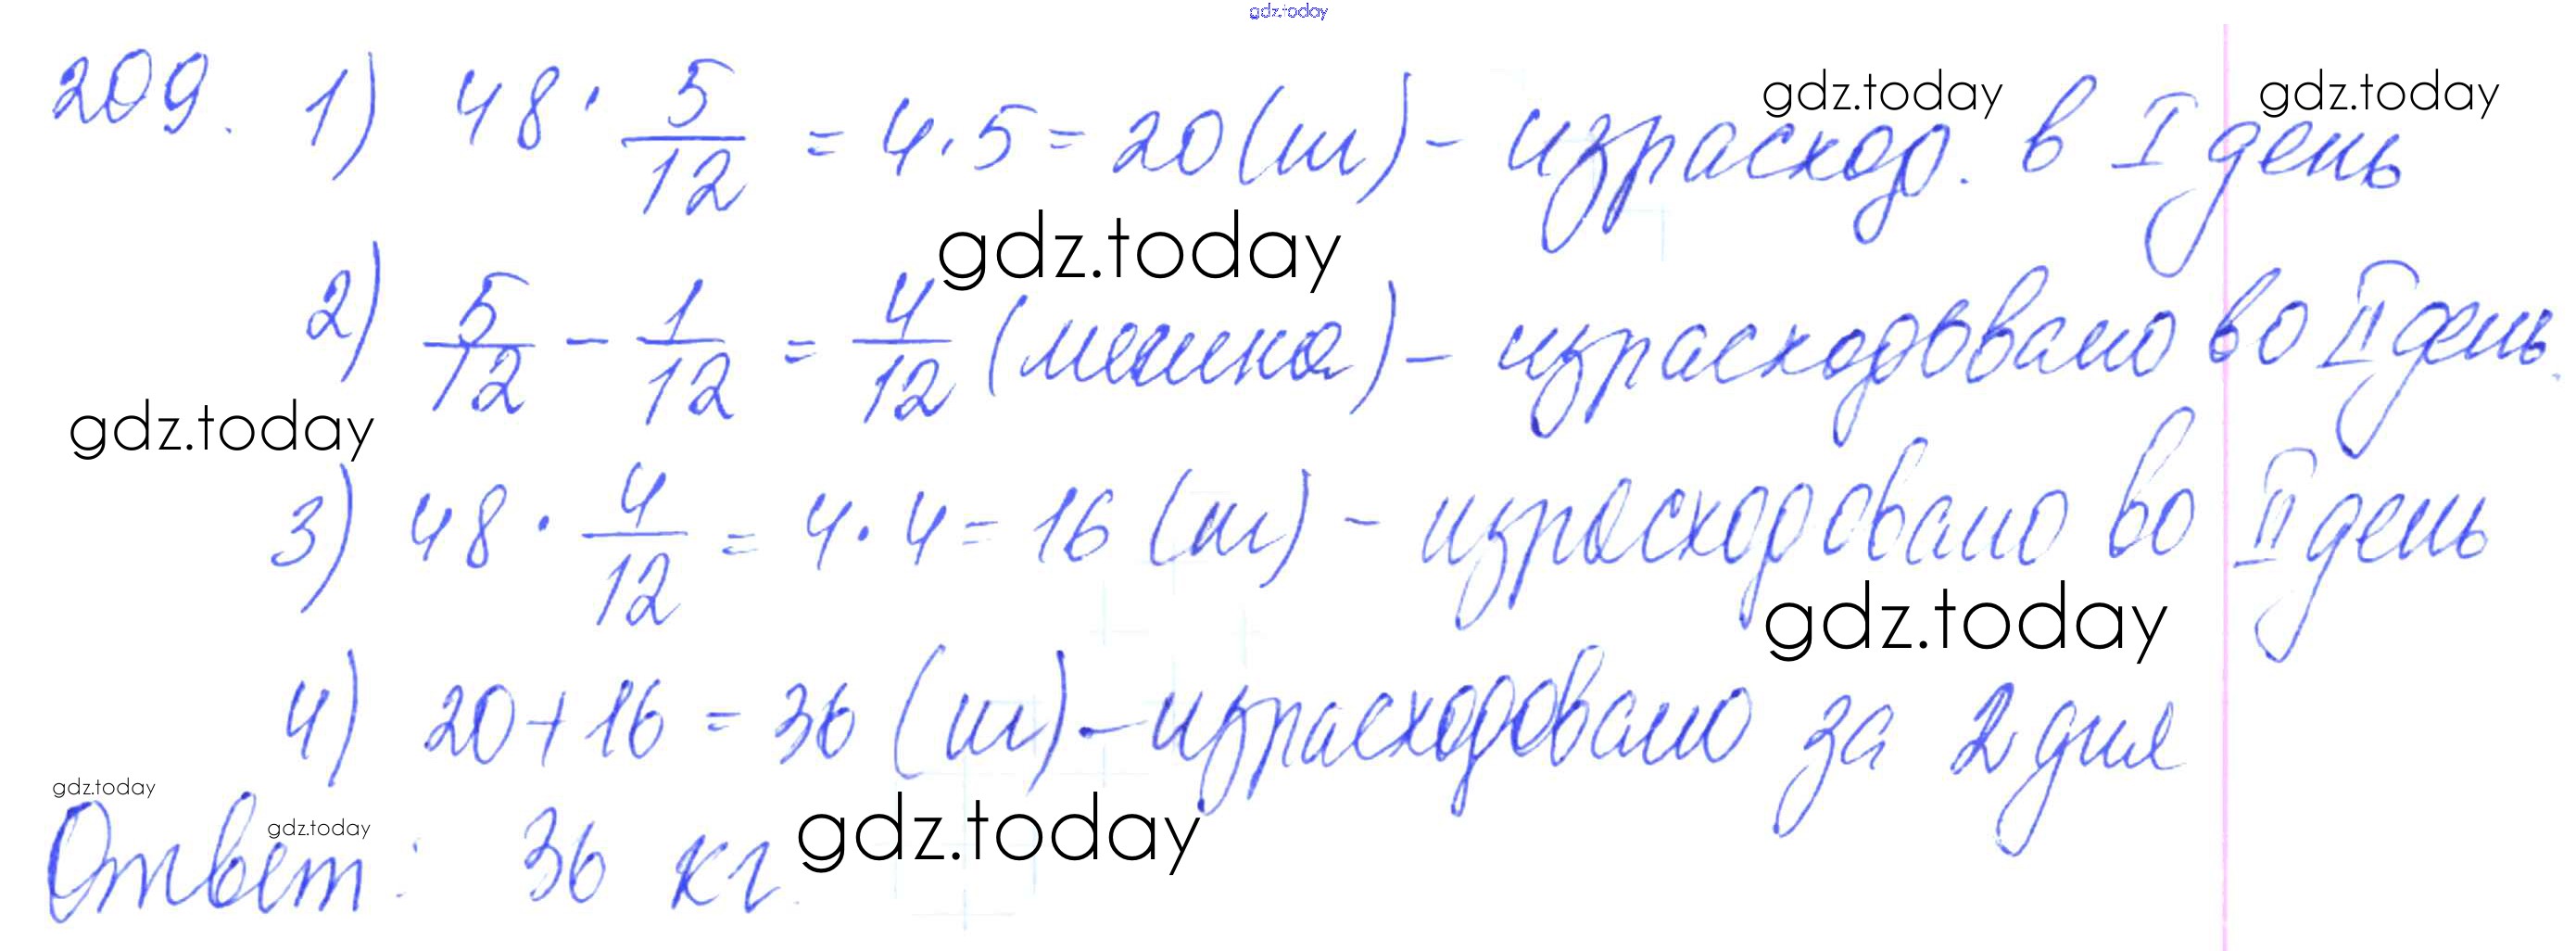 gdz.today
209. 1) 48 · 5/12 = 4 · 5 = 20 (ш) - израсход. в I день
gdz.today gdz.today
gdz.today
2) 5/12 - 1/12 = 4/12 (мешка) - израсходовано во II день.
gdz.today
3) 48 · 4/12 = 4 · 4 = 16 (ш) - израсходовано во II день
gdz.today
4) 20 + 16 = 36 (ш) - израсходовано за 2 дня
gdz.today
gdz.today
gdz.today
Ответ: 36 кг.